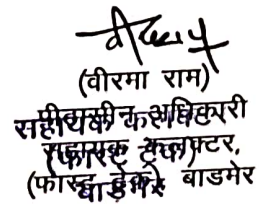 (वीरमा राम)
पीठासीन अधिकारी
सहायक कलक्टर
सहायक कलक्टर,
(फास्ट ट्रेक)
(फास्ट ट्रेक) बाडमेर
बाडमेर